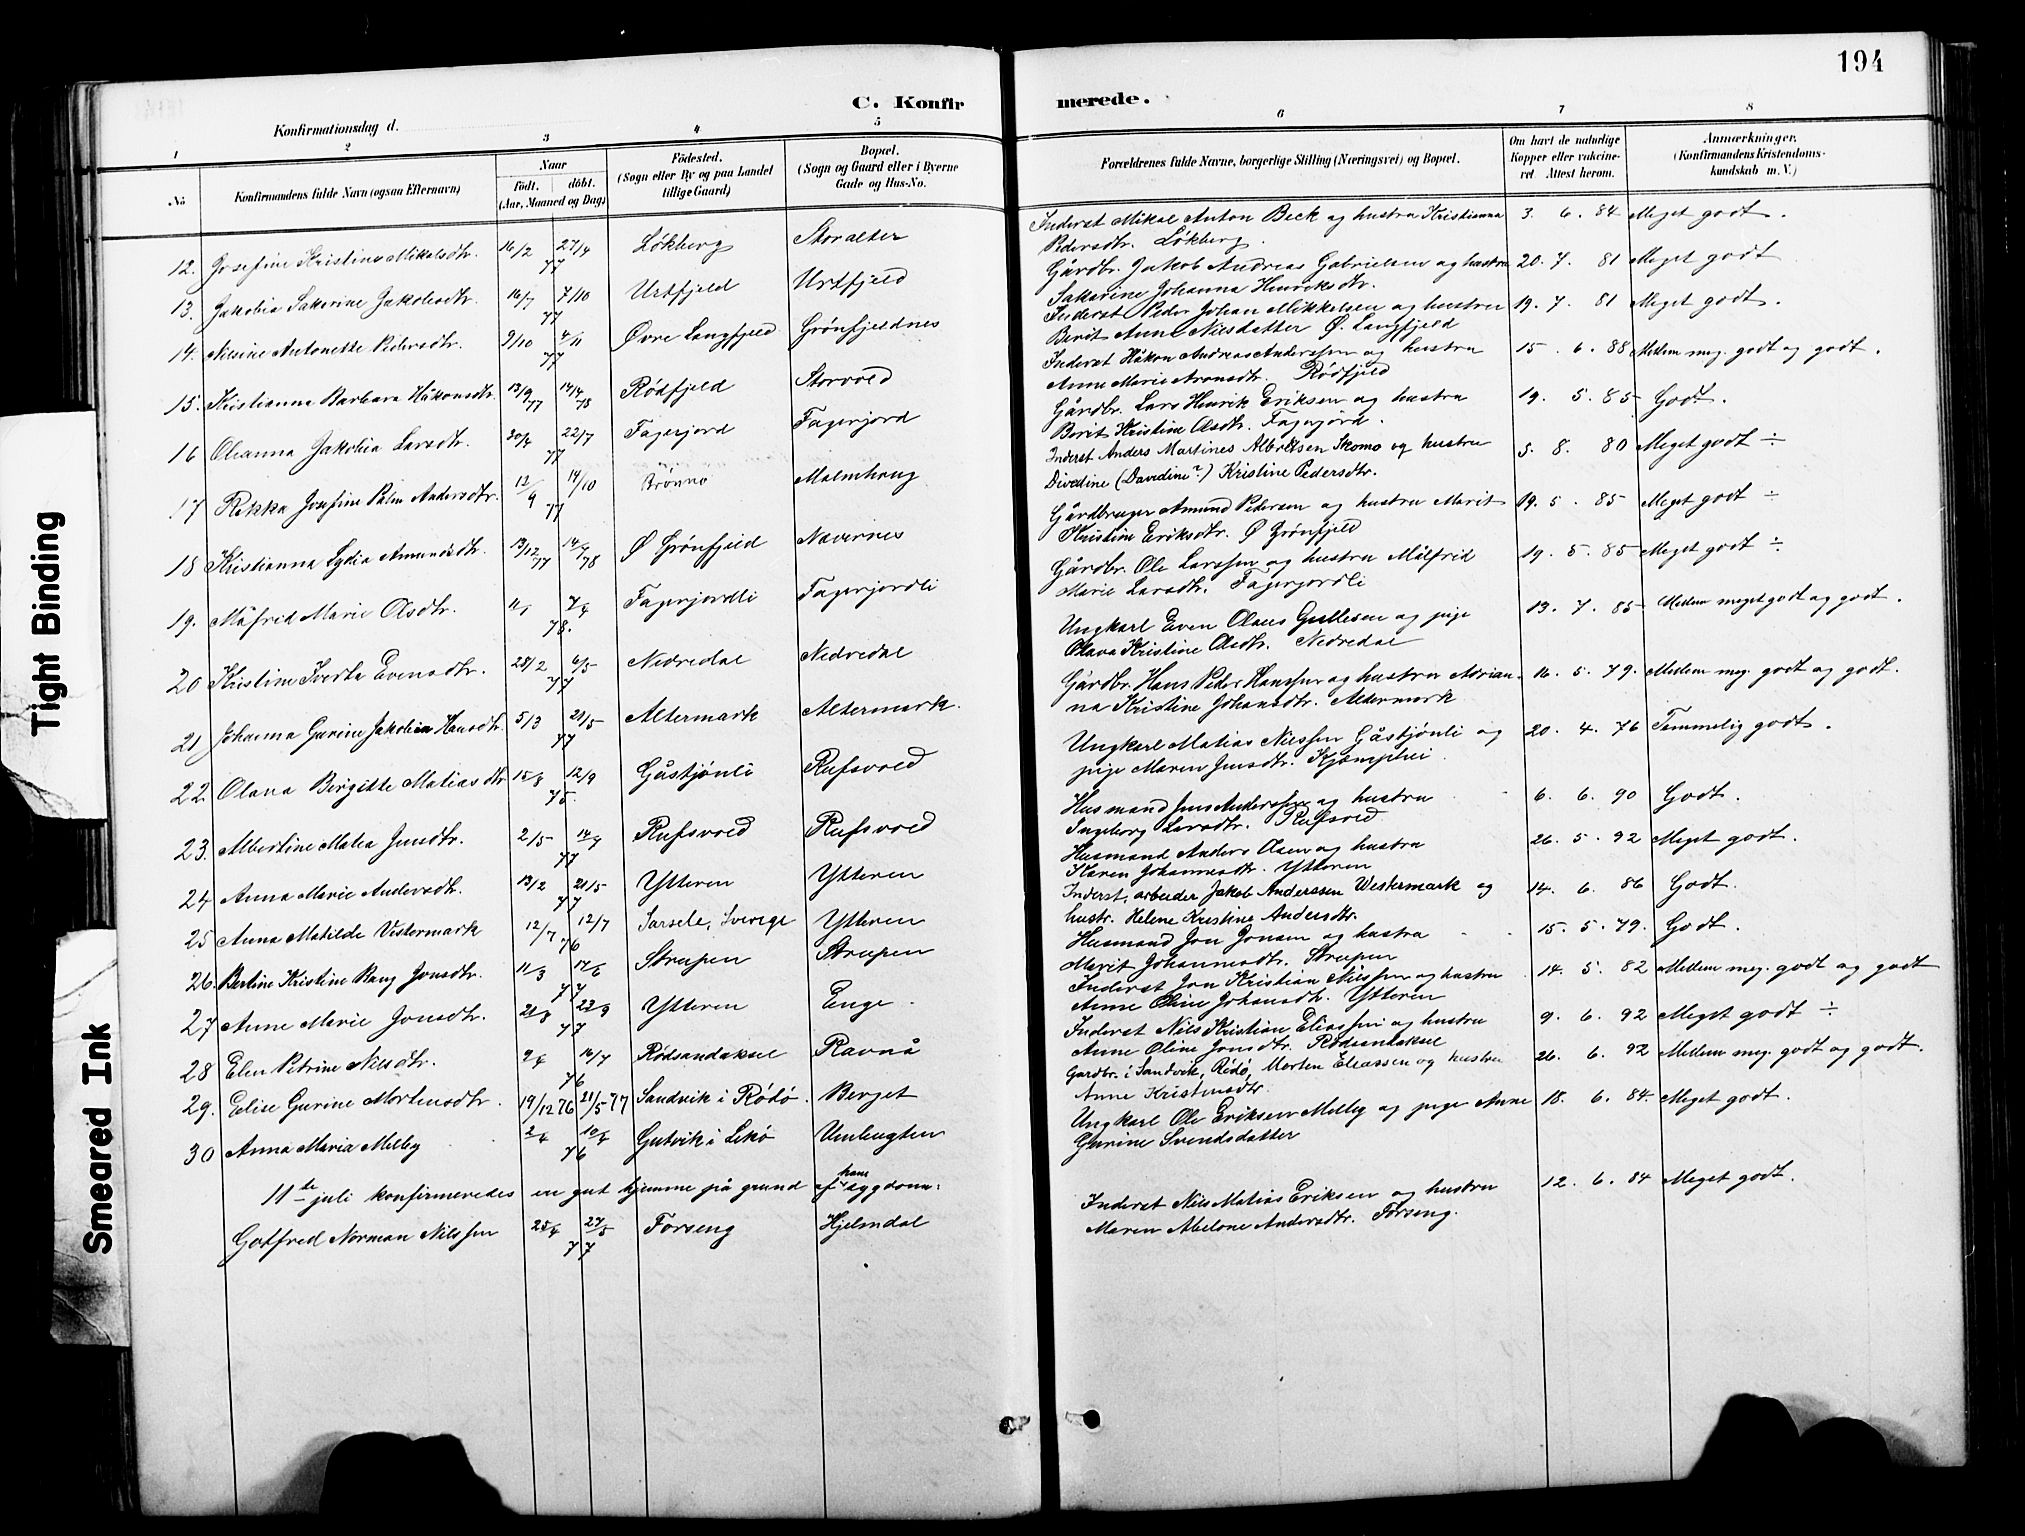 194
C. Konfir merede.
Konfirmationsdag d.
1 2 3 4 5 6 7 8
No Konfirmandens fulde Navn (ogsaa Efternavn)
Naar født. døbt. (Aar, Maaned og Dag)
Fødested. (Sogn eller By og paa Landet tillige Gaard)
Bopæl. (Sogn og Gaard eller i Byerne Gade og Hus-No.
Forældrenes fulde Navne, borgerlige Stilling (Næringsvei) og Bopæl.
Om havt de naturlige Kopper eller vakcineret. Attest herom.
Anmærkninger. (Konfirmandens Kristendomskundskab m. V.)
12. Josefine Kristine Mikalsdtr. 16/2 27/4 77 Løkberg Storalter Inderst Mikal Anton Beck og hustru Kristianna 3. 6. 84 Meget godt.
Pedersdtr. Løkberg.
13. Jakobia Sakarine Jakobsdtr. 16/7 7/10 77 Urtfjeld Urtfjeld Gårdbr. Jakob Andreas Gabrielsen og hustru 20. 7. 81 Meget godt
Sakarine Johanna Henriksdtr.
14. Nilsine Antonette Pedersdtr. 9/10 4/11 77 Øvre Langfjeld Grønfjeldnes Inderst Peder Johan Mikkelsen og hustru 19. 7. 81 Meget godt.
Berit Anne Nilsdatter Ø. Langfjeld
15. Kristianna Barbara Håkonsdtr. 13/9 77 14/4 78 Rødfjeld Storvold Inderst Håkon Andreas Anderssen og hustru 15. 6. 88 Mellem meg. godt og godt.
Anne Marie Aronsdtr. Rødfjeld
16 Oleanna Jakobia Larsdtr. 20/4 22/7 77 Fagerjord Fagerjord Gårdbr. Lars Henrik Eriksen og hustru 19. 5. 85 Godt.
Berit Kristine Olsdtr. Fagerjord.
17 Rekka Josefine Palm Andersdtr. 12/9 14/10 77 Brønnø Malmhaug Inderst Anders Martines Albrktsen Skomo og hustru 5. 8. 80 Meget godt ÷
Divedine (Davidine?) Kristine Pedersdtr.
18 Kristianna Lydia Amundsdtr. 13/12 77 14/4 78 Ø Grønfjeld Nævernes Gårdbruger Amund Pedersen og hustru Marit 19. 5. 85 Meget godt ÷
Kristine Eriksdtr. Ø Grønfjeld
19. Målfrid Marie Olsdtr. 11/1 7/4 78. Fagerjordli Fagerjordli Gårdbr. Ole Larssen og hustru Målfrid 19. 5. 85 Meget godt ÷
Marie Larsdtr. Fagerjordli
20 Kristine Iverta Evensdtr. 28/2 6/5 77 Nedredal Nedredal Ungkarl Even Olaus Gullesen og pige 13. 7. 85 Mellem meget godt og godt.
Olava Kristine Olsdtr. Nedredal
21 Johanna Gurine Jakobia Hansdtr. 5/3 21/5 77 Altermark Altermark. Gårdbr. Hans Peder Hanssen og hustru Adrian- 16. 5. 79. Mellem meg. godt og godt.
na Kristine Johansdtr. Altermark
22 Olana Bergitte Matiasdtr 15/8 12/9 75. Gåstjønli Rufsvold Ungkarl Matias Nilssen Gåstjønli og 20. 4. 76 Temmelig godt.
pige Maren Jensdtr. Kjemphei
23. Albertine Malea Jensdtr. 2/5 14/7 77 Rufsvold Rufsvold Husmand Jens Anderssen og hustru 6. 6. 90 Godt.
Ingeborg Larsdtr. Rufsvold
24 Anna Marie Andersdtr. 13/2 21/5 77 Ytteren Ytteren Husmand Anders Olsen og hustru 26. 5. 92 Meget godt.
Karen Johannesdtr. Ytteren
25 Anna Matilde Vestermark 12/7 12/7 76 Sorsele, Sverige Ytteren Inderst, arbeider Jakob Anderssen Westermark og 14. 6. 86 Godt.
hustr. Helene Kristine Andersdtr.
26. Bertine Kristine Bang Jonsdtr. 11/3 17/6 77 Strupen Strupen Husmand Jon Jonsen og hustru 15. 5. 79. Godt.
Marit Johannesdtr. Strupen
27 Anne Marie Jonsdtr. 21/8 23/9 77 Ytteren Enge. Inderst Jon Kristian Nilssen og hustru 14. 5. 82 Mellem meg. godt og godt
Anne Oline Johansdtr. Ytteren
28 Elen Petrine Nilsdtr. 9/4 16/7 76 Rødsandaksel Ravnå Inderst Nils Kristian Eliassen og hustru 9. 6. 92 Meget godt ÷
Anne Oline Jonsdtr. Rødsandaksel
29. Elise Gurine Mortensdtr. 19/12 76 21/5 77 Sandvik i Rødø. Berget Gardbr. i Sandvik, Rødø, Morten Eliassen og hustru 26. 6. 92 Mellem meg. godt og godt.
Anne Kristensdtr.
30 Anna Maria Melby 2/4 10/4 76 Gutvik i Lekø Umbugten Ungkarl Ole Eriksen Melby og pige Anne 18. 6. 84. Meget godt.
Gurine Svendsdatter
11te juli konfirmeredes en gut hjemme på grund af hans sygdom:
Gotfred Norman Nilssen 25/4 27/5 77 Forseng Hjelmdal Inderst Nils Matias Eriksen og hustru 12. 6. 84 Meget godt.
Maren Abelone Andersdtr. Forseng.
Tight Binding
Smeared Ink